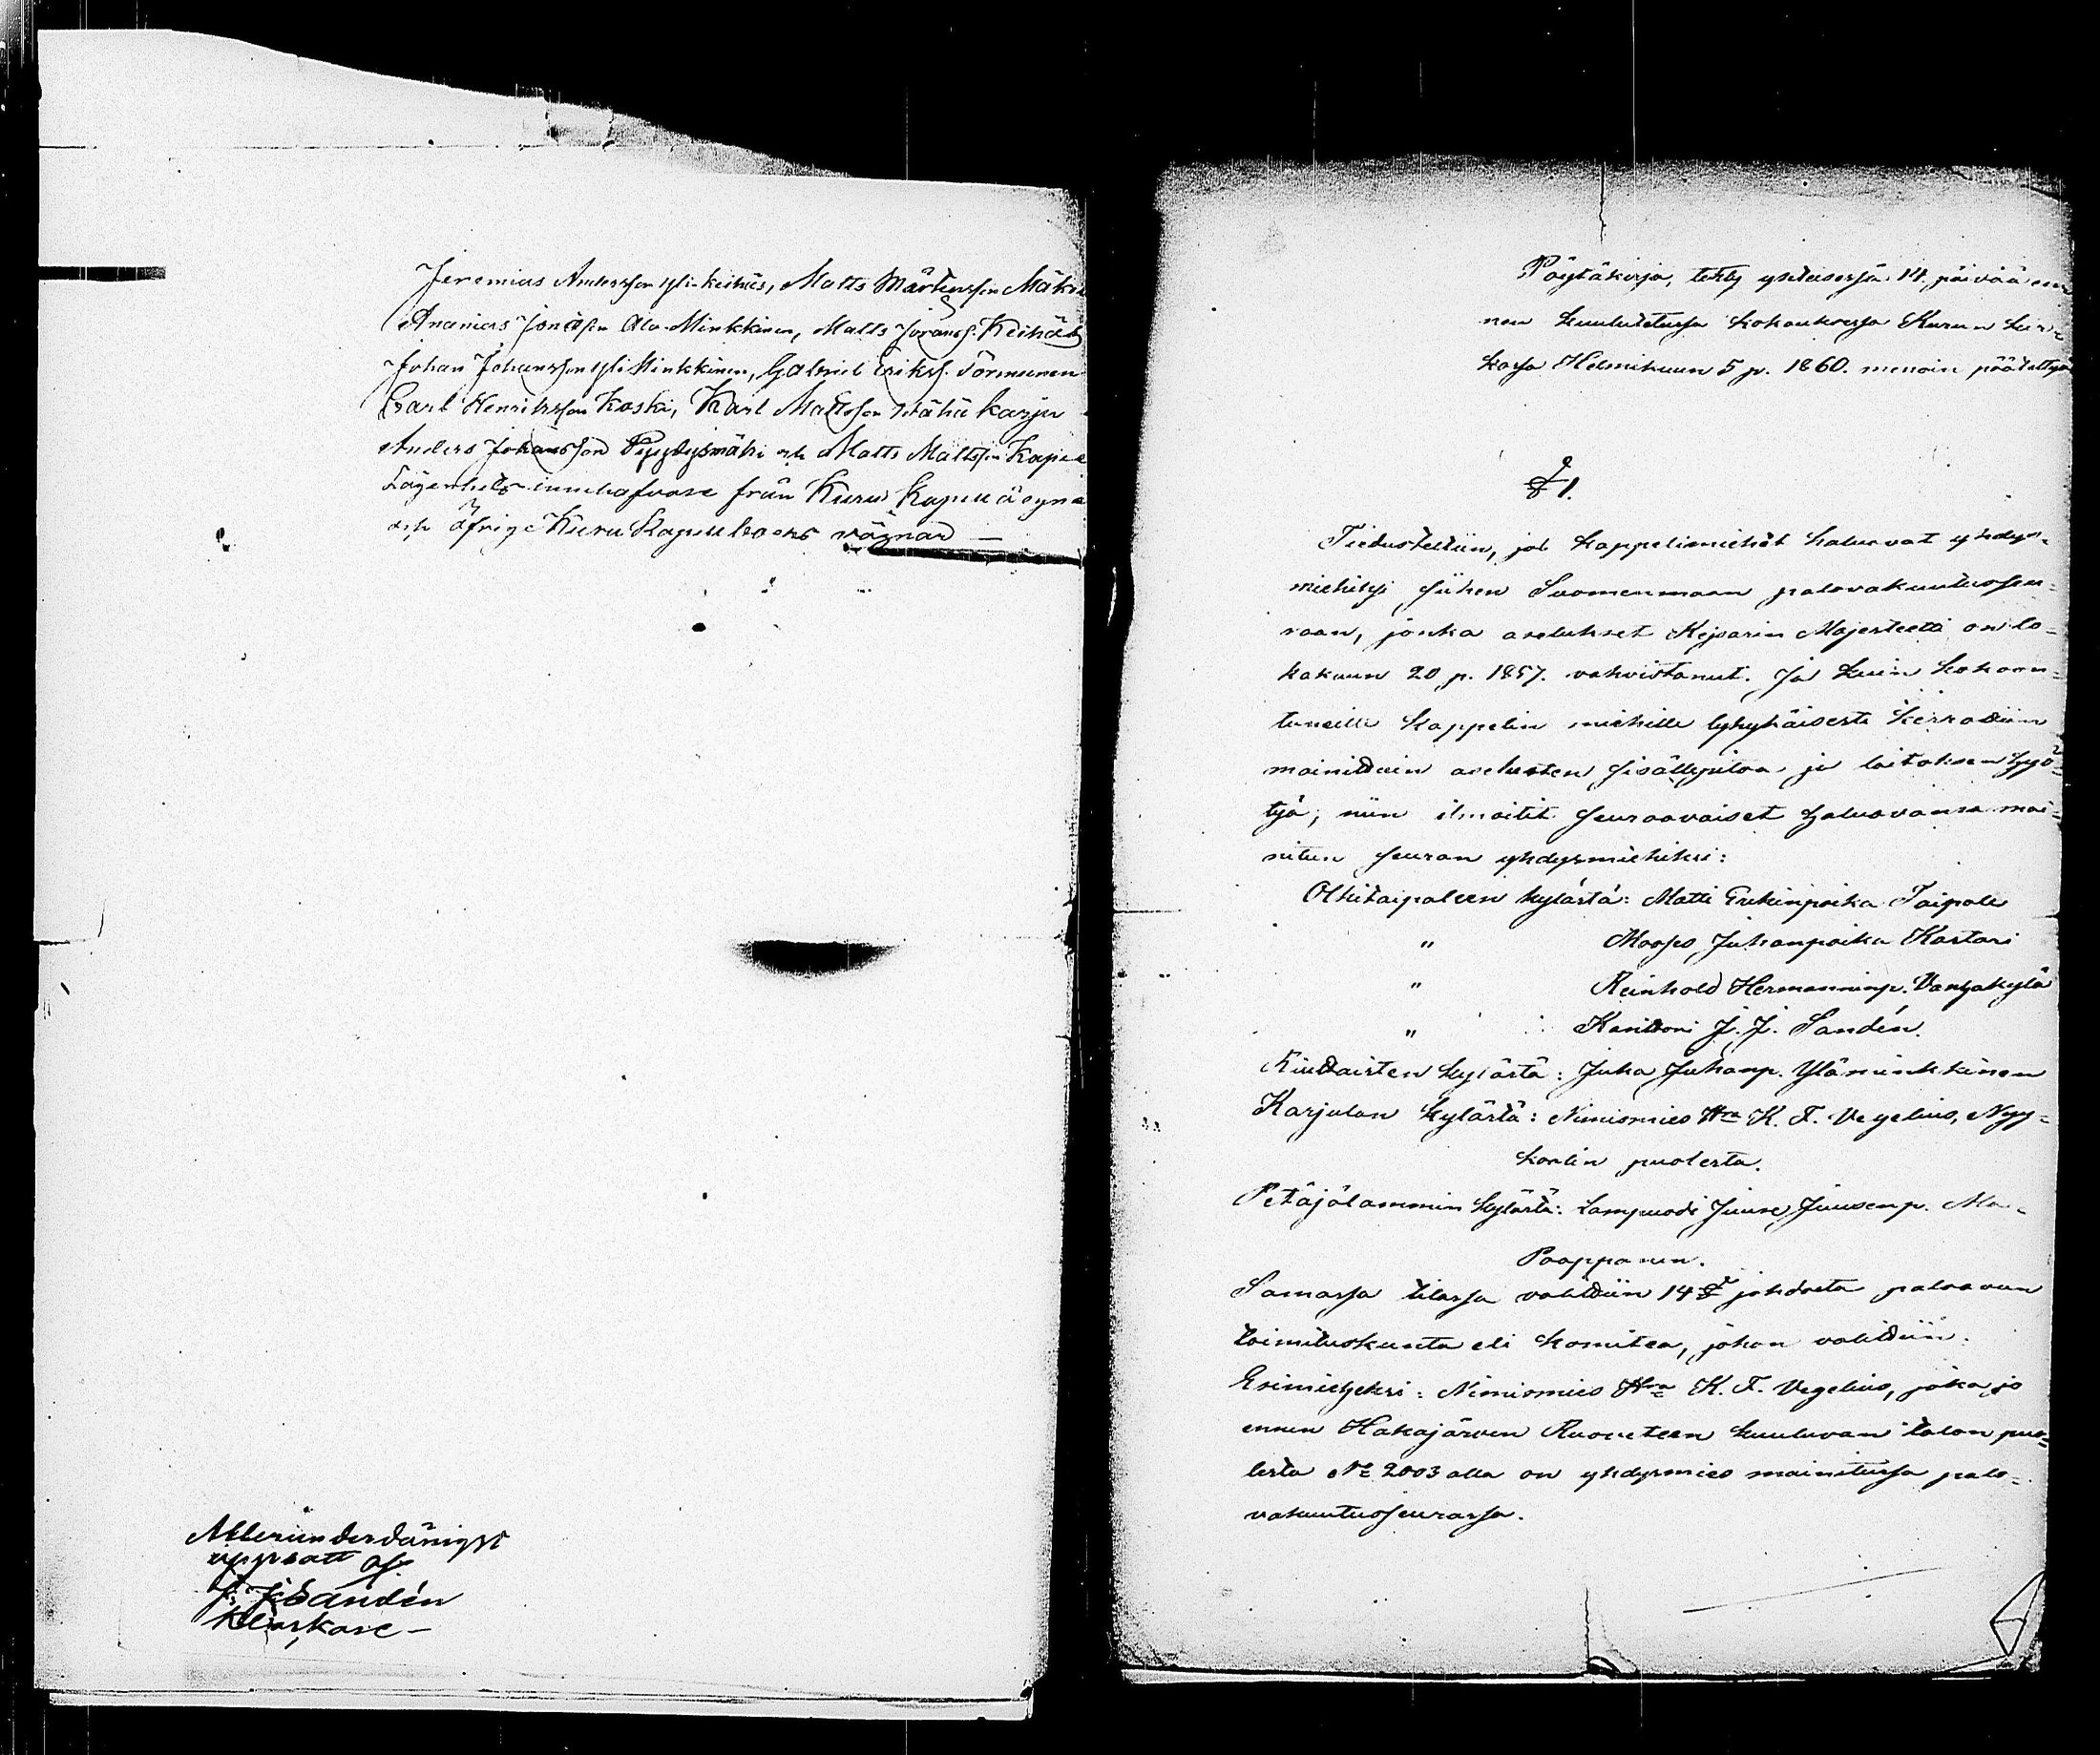 Jeremias Andersson Yli-Keihäs, Matts Mårtensson Mäki
Ananias Jonasson Ala-Minkkinen, Matts Göransf. Keihäs
Johan Johansson Yli Minkkinen, Gabriel Eriksf. Törmunen
Carl Henriksson Koski, Karl Mattsson Wähä Karju
Anders Johansson Pyydysmäki och Matts Mattsson
Lägenhets innehafvare från Kuru Kapell å egna
och öfrige Kuru Kapellboers vägnar —
Allerunderdånigst
uppsatt af
J. J. Sandén
Klockare —
Pöytäkirja, tehty yhteisessä 14. päivää en-
nen kuulutetussa kokouksessa Kurun kir-
kossa Helmikuun 5 p. 1860. menoin päätettyä
§ 1.
Tiedusteltiin, jos kappelimiehet haluavat yhdys-
miehiksi siihen Suomenmaan palovakuutusseu-
raan, jonka asetukset Kejsarin Majesteetti on lo-
kakuun 20 p. 1857. vahvistanut. Ja kuin kokoon-
tuneille kappelin miehille lyhykäisesti kerrottiin
mainittuin asetusten sisällepitoa ja laitoksen hyö-
tyä, niin ilmoitit seuraavaiset haluavansa mai-
nitun seuran yhdysmiehiksi:
Olkitaipaleen kylästä: Matti Erkinpoika Taipale
" Mooses Juhanpoika Kastari
" Reinhold Hermanninp. Vanhakylä
" Kanttori J. J. Sandén.
Riuttaisten kylästä: Juha Juhanp. Yläminkkinen
Karjulan kylästä: Nimismies Hra K. F. Vegelius, Nyy-
puolesta.
Petäjälammin kylästä: Lampuodi Juuse Juusenp. Ma-
Paappanen.
Samassa tilassa valittiin 14 § johdosta paloavun
toimituskunta eli komitea, johon valittiin.
Esimieheksi: Nimismies Hra K. F. Vegelius, joka jo
ennen Hakajärven Ruoveteen kuuluvan talon puo-
lesta No 2003 alla on yhdysmies mainitussa palo-
vakuutusseurassa.